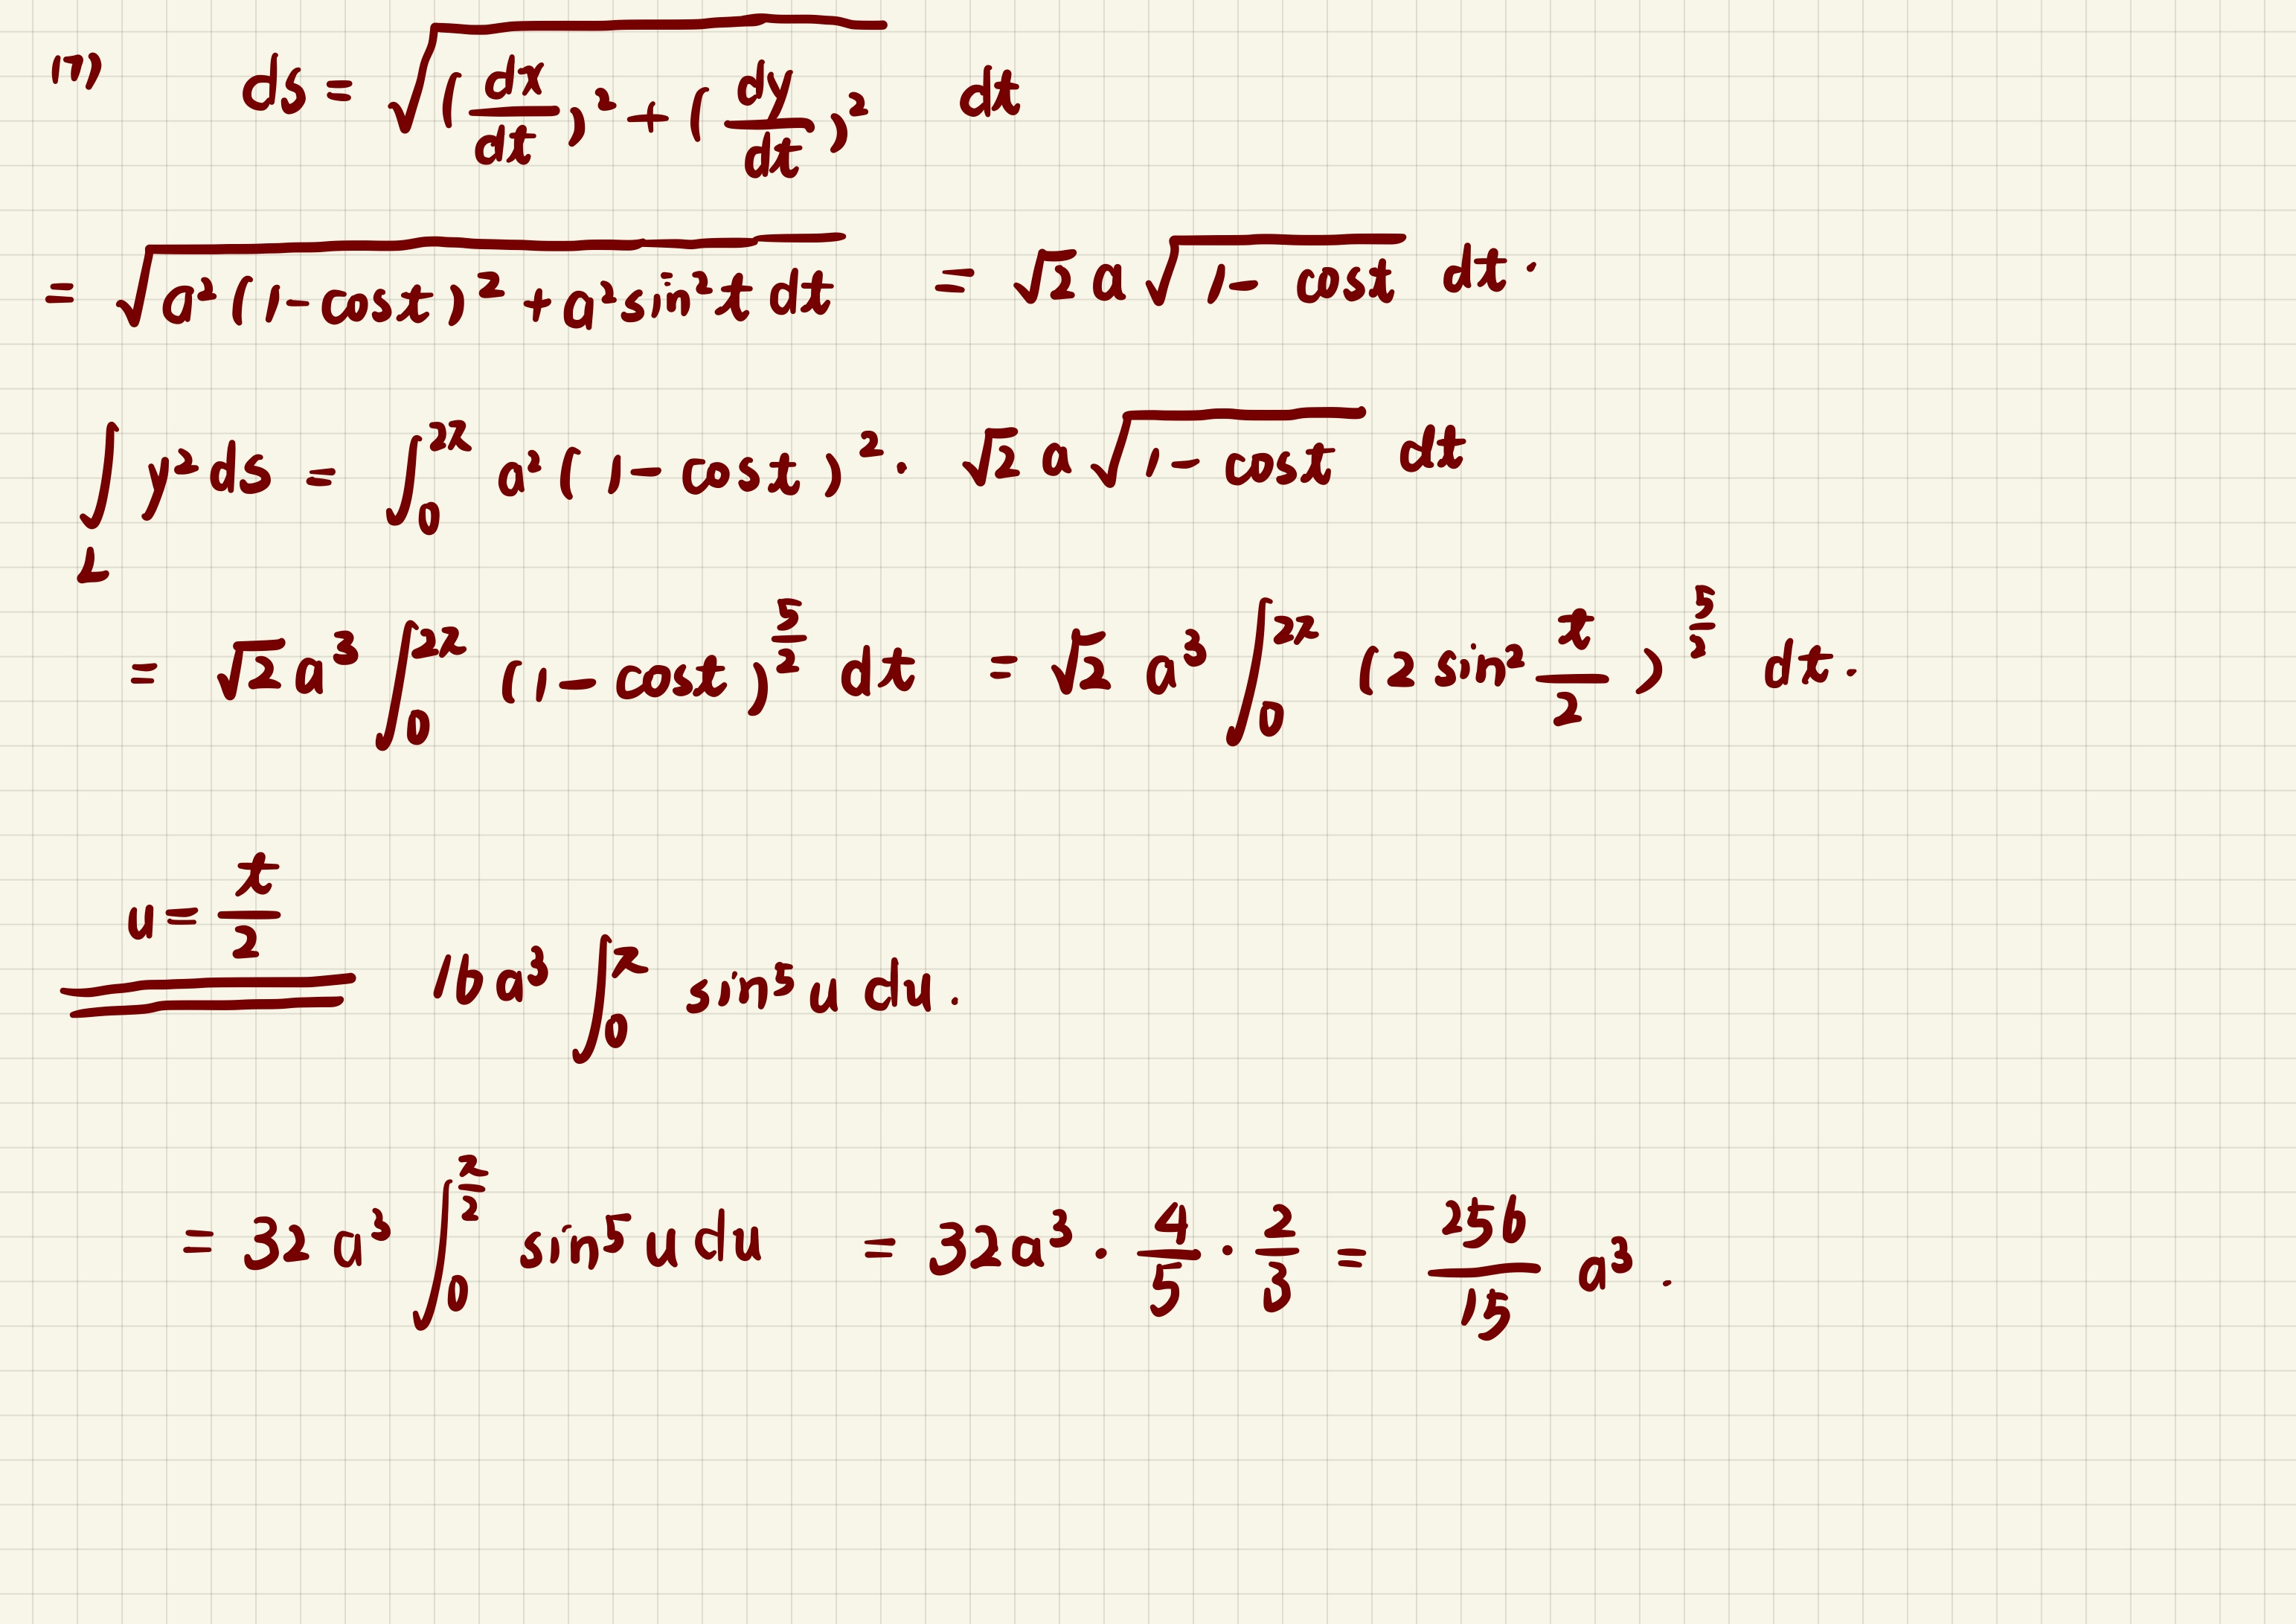 (7) ds = √((dx/dt)² + (dy/dt)²) dt
= √(a²(1-cost)² + a²sin²t dt) = √2 a √(1-cost) dt.
∫_L y² ds = ∫_0^{2π} a²(1-cost)² · √2 a √(1-cost) dt
= √2 a³ ∫_0^{2π} (1-cost)^{5/2} dt = √2 a³ ∫_0^{2π} (2 sin² t/2)^{5/2} dt.
u = t/2
═ 16a³ ∫_0^π sin⁵ u du.
= 32 a³ ∫_0^{π/2} sin⁵ u du = 32a³ · 4/5 · 2/3 = 256/15 a³.